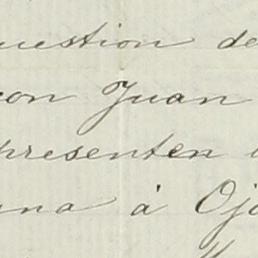 uestion de
con Juan
presenten
una à Oj